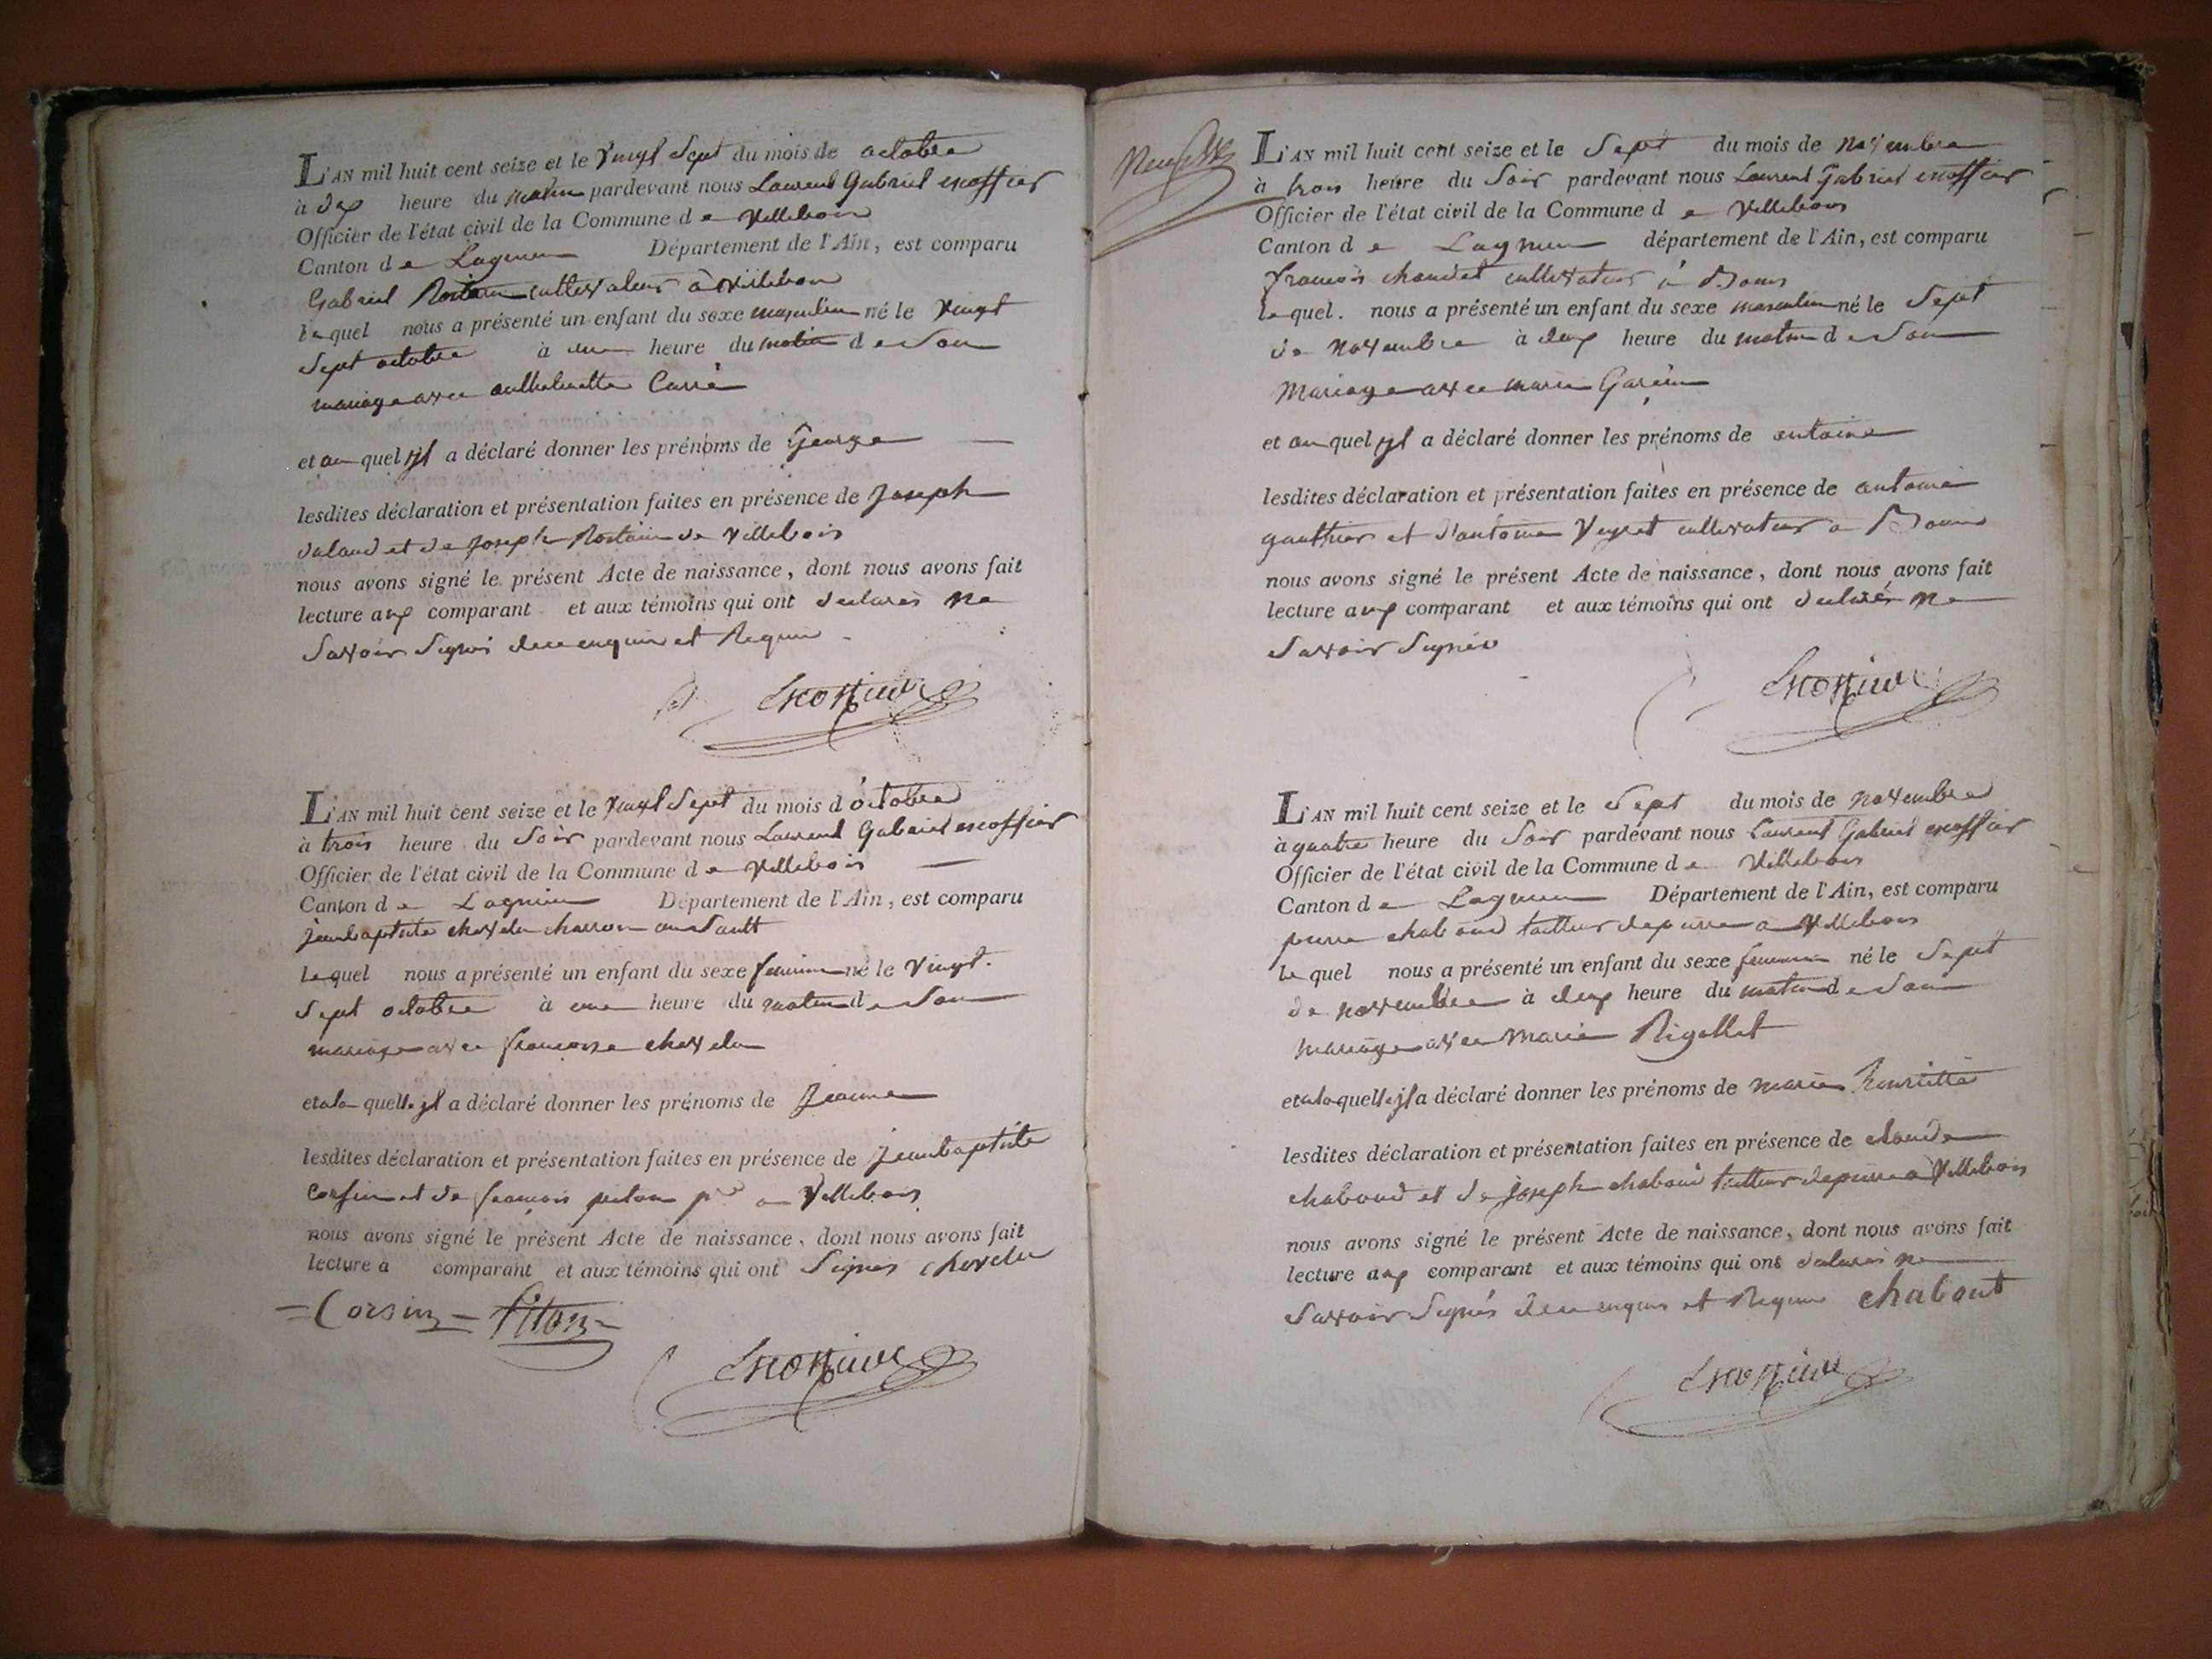 L'AN mil huit cent seize et le vingt Sept du mois de octobre
à dix heure du matin pardevant nous Laurent Gabriel escoffier
Officier de l'état civil de la Commune d e Villebois
Canton d e Lagnieu Département de l'Ain, est comparu
Gabriel Rostain cultivateur à Villebois
le quel nous a présenté un enfant du sexe masculin né le vingt
Sept octobre à une heure du matin d e Son
mariage avec anthelmette Carré
et au quel jl a déclaré donner les prénoms de George
lesdites déclaration et présentation faites en présence de Joseph
et de Joseph Rostain de Villebois
nous avons signé le présent Acte de naissance, dont nous avons fait
lecture aux comparant et aux témoins qui ont declarés ne
Savoir Signés de ce enquis et Requis
L'AN mil huit cent seize et le vingt Sept du mois d'octobre
à trois heure du Soir pardevant nous Laurent Gabriel escoffier
Officier de l'état civil de la Commune d e Villebois
Canton d e Lagnieu Département de l'Ain, est comparu
jeanbaptiste chevelu charron au Sault
le quel nous a présenté un enfant du sexe feminin né le vingt
Sept octobre à une heure du matin d e Son
mariage avec françoise chevelu
et à la quelle jl a déclaré donner les prénoms de Jeanne
lesdites déclaration et présentation faites en présence de jeanbaptiste
Corsin et de françois piton a Villebois
nous avons signé le présent Acte de naissance, dont nous avons fait
lecture à comparant et aux témoins qui ont Signés chevelu
= Corsin = Piton
L'AN mil huit cent seize et le Sept du mois de novembre
à trois heure du Soir pardevant nous Laurent Gabriel escoffier
Officier de l'état civil de la Commune d e Villebois
Canton d e Lagnieu département de l'Ain, est comparu
françois chaudet cultivateur à Bouis
le quel nous a présenté un enfant du sexe masculin né le Sept
de novembre à deux heure du matin d e Son
Mariage avec marie Garcin
et au quel jl a déclaré donner les prénoms de antoine
lesdites déclaration et présentation faites en présence de antoine
gauthier et d'antoine Veyret cultivateur a Bouis
nous avons signé le présent Acte de naissance, dont nous avons fait
lecture aux comparant et aux témoins qui ont declarés ne
Savoir Signés
L'AN mil huit cent seize et le Sept du mois de novembre
à quatre heure du Soir pardevant nous Laurent Gabriel escoffier
Officier de l'état civil de la Commune d e Villebois
Canton d e Lagnieu Département de l'Ain, est comparu
pierre chaboud tailleur de pierre a Villebois
le quel nous a présenté un enfant du sexe feminin né le Sept
de novembre à deux heure du matin d e Son
mariage avec Marie Rigollet
et à la quelle jl a déclaré donner les prénoms de marie henriette
lesdites déclaration et présentation faites en présence de claude
chaboud et de joseph chaboud tailleur de pierre a Villebois
nous avons signé le présent Acte de naissance, dont nous avons fait
lecture aux comparant et aux témoins qui ont declarés ne
Savoir Signés de ce enquis et Requis chabout